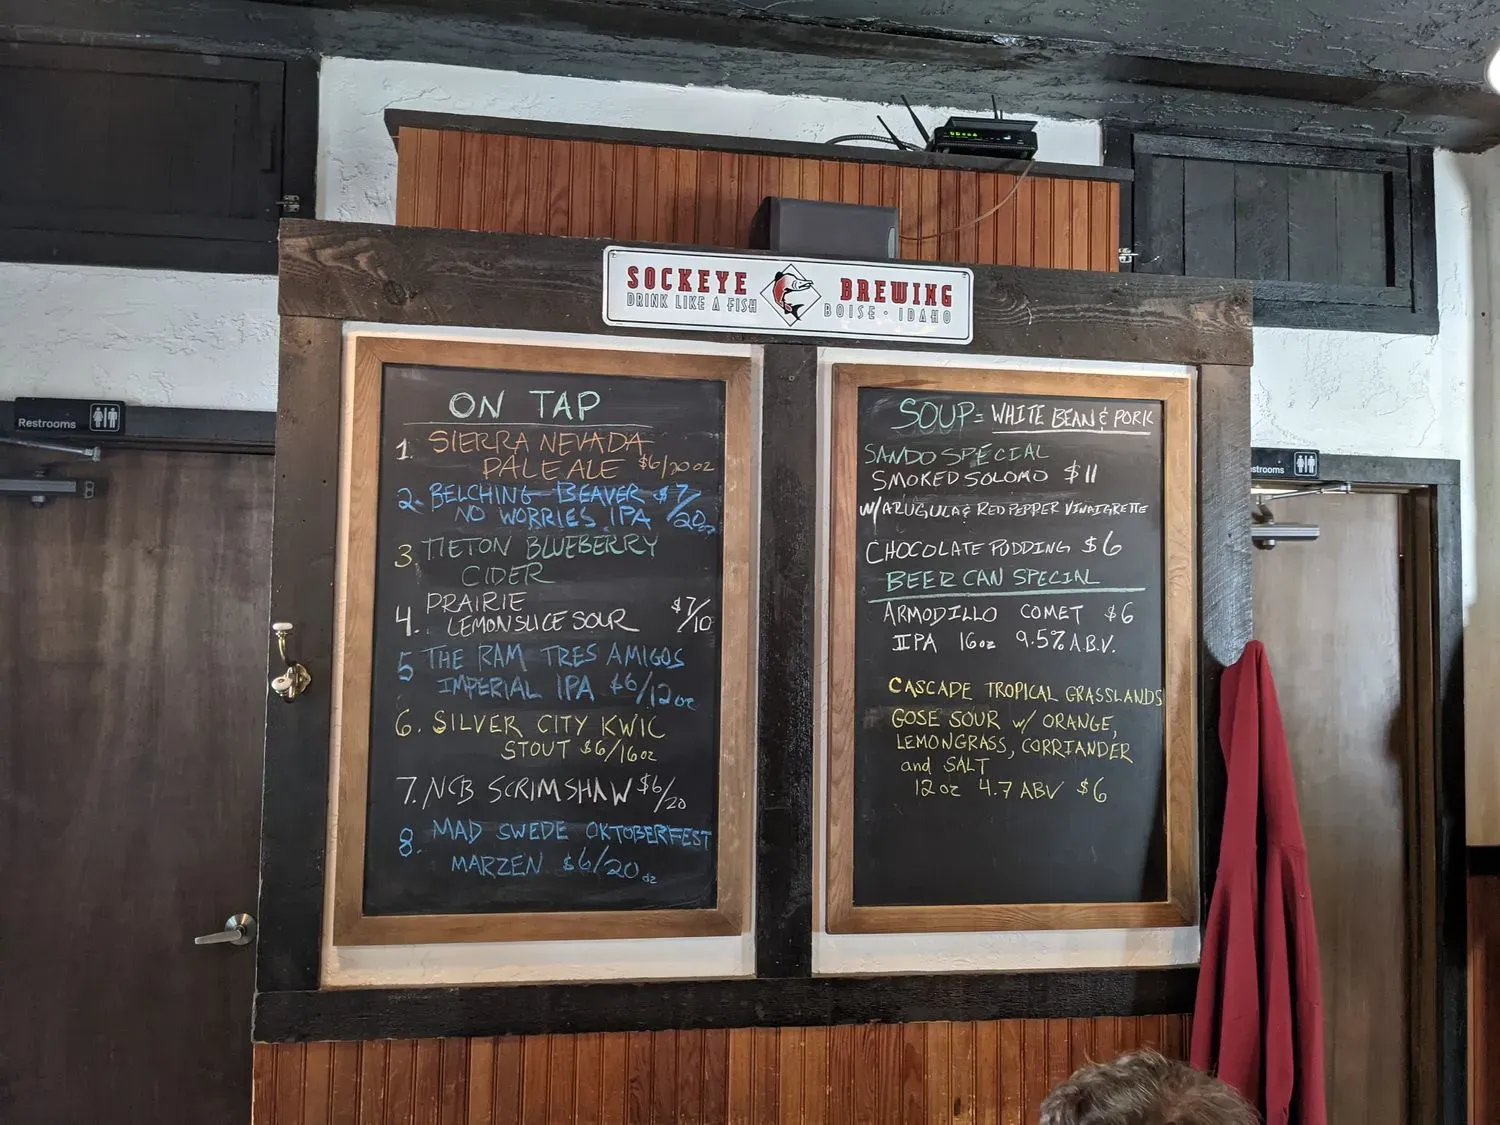 SOCKEYE BREWING
DRINK LIKE A FISH BOISE · IDAHO
Restrooms
ON TAP
1. SIERRA NEVADA
PALE ALE $6/20oz
2. BELCHING BEAVER $7/20oz
NO WORRIES IPA
3 TIETON BLUEBERRY
CIDER
4. PRAIRIE
LEMON SLICE SOUR $7/10
5 THE RAM TRES AMIGOS
IMPERIAL IPA $6/12oz
6. SILVER CITY KWIC
STOUT $6/16oz
7. NCB SCRIMSHAW $6/20
8. MAD SWEDE OKTOBERFEST
MARZEN $6/20oz
SOUP = WHITE BEAN & PORK
SANDO SPECIAL
SMOKED SOLOMO $11
W/ ARUGULA & RED PEPPER VINAIGRETTE
CHOCOLATE PUDDING $6
BEER CAN SPECIAL
ARMODILLO COMET $6
IIPA 16oz 9.5% A.B.V.
CASCADE TROPICAL GRASSLANDS
GOSE SOUR w/ ORANGE,
LEMONGRASS, CORRIANDER
and SALT
12oz 4.7 ABV $6
strooms